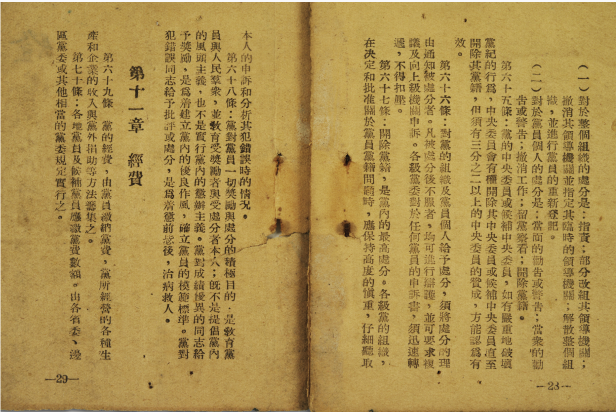 （一）對於整個組織的處分是：指責；部分改組其領導機關；
撤消其領導機關並指定其臨時的領導機關；解散整個組
織，並進行黨員的重新登記。
（二）對於黨員個人的處分是：當面的勸告或警告；當衆的勸
告或警告；撤消工作；留黨察看；開除黨籍。
第六十五條：黨的中央委員或候補中央委員，如有嚴重地破壞
黨紀的行爲，中央委員會有權開除其中央委員或候補中央委員直至
開除其黨籍，但須有三分之二以上的中央委員的贊成，方能認爲有
效。
第六十六條：對黨的組織及黨員個人給予處分，須將處分的理
由通知被處分者。凡被處分後不服者，均可進行辯護，並可要求複
議及向上級機關申訴。各級黨委對於任何黨員的申訴書，須迅速轉
遞，不得扣壓。
第六十七條：開除黨籍，是黨內的最高處分。各級黨的組織，
在決定和批准關於黨員黨籍問題時，應保持高度的慎重，仔細聽取
—28—
本人的申訴和分析其犯錯誤時的情況。
第六十八條：黨對黨員一切奬勵與處分的積極目的，是敎育黨
員與人民羣衆，並敎育受奬勵者與受處分者本人；旣不是提倡黨內
的風頭主義，也不是實行黨內的懲辦主義。黨對成績優異的同志給
予奬勵，是爲着建立黨內的優良作風，確立黨員的模範標準。黨對
犯錯誤同志給予批評或處分，是爲着懲前毖後，治病救人。
第十一章 經費
第六十九條：黨的經費，由黨員繳納黨費，黨所經營的各種生
產和企業的收入與黨外捐助等方法籌集之。
第七十條：各地黨員及候補黨員應繳黨費數額。由各省委、邊
區黨委或其他相當的黨委規定實行之。
—29—